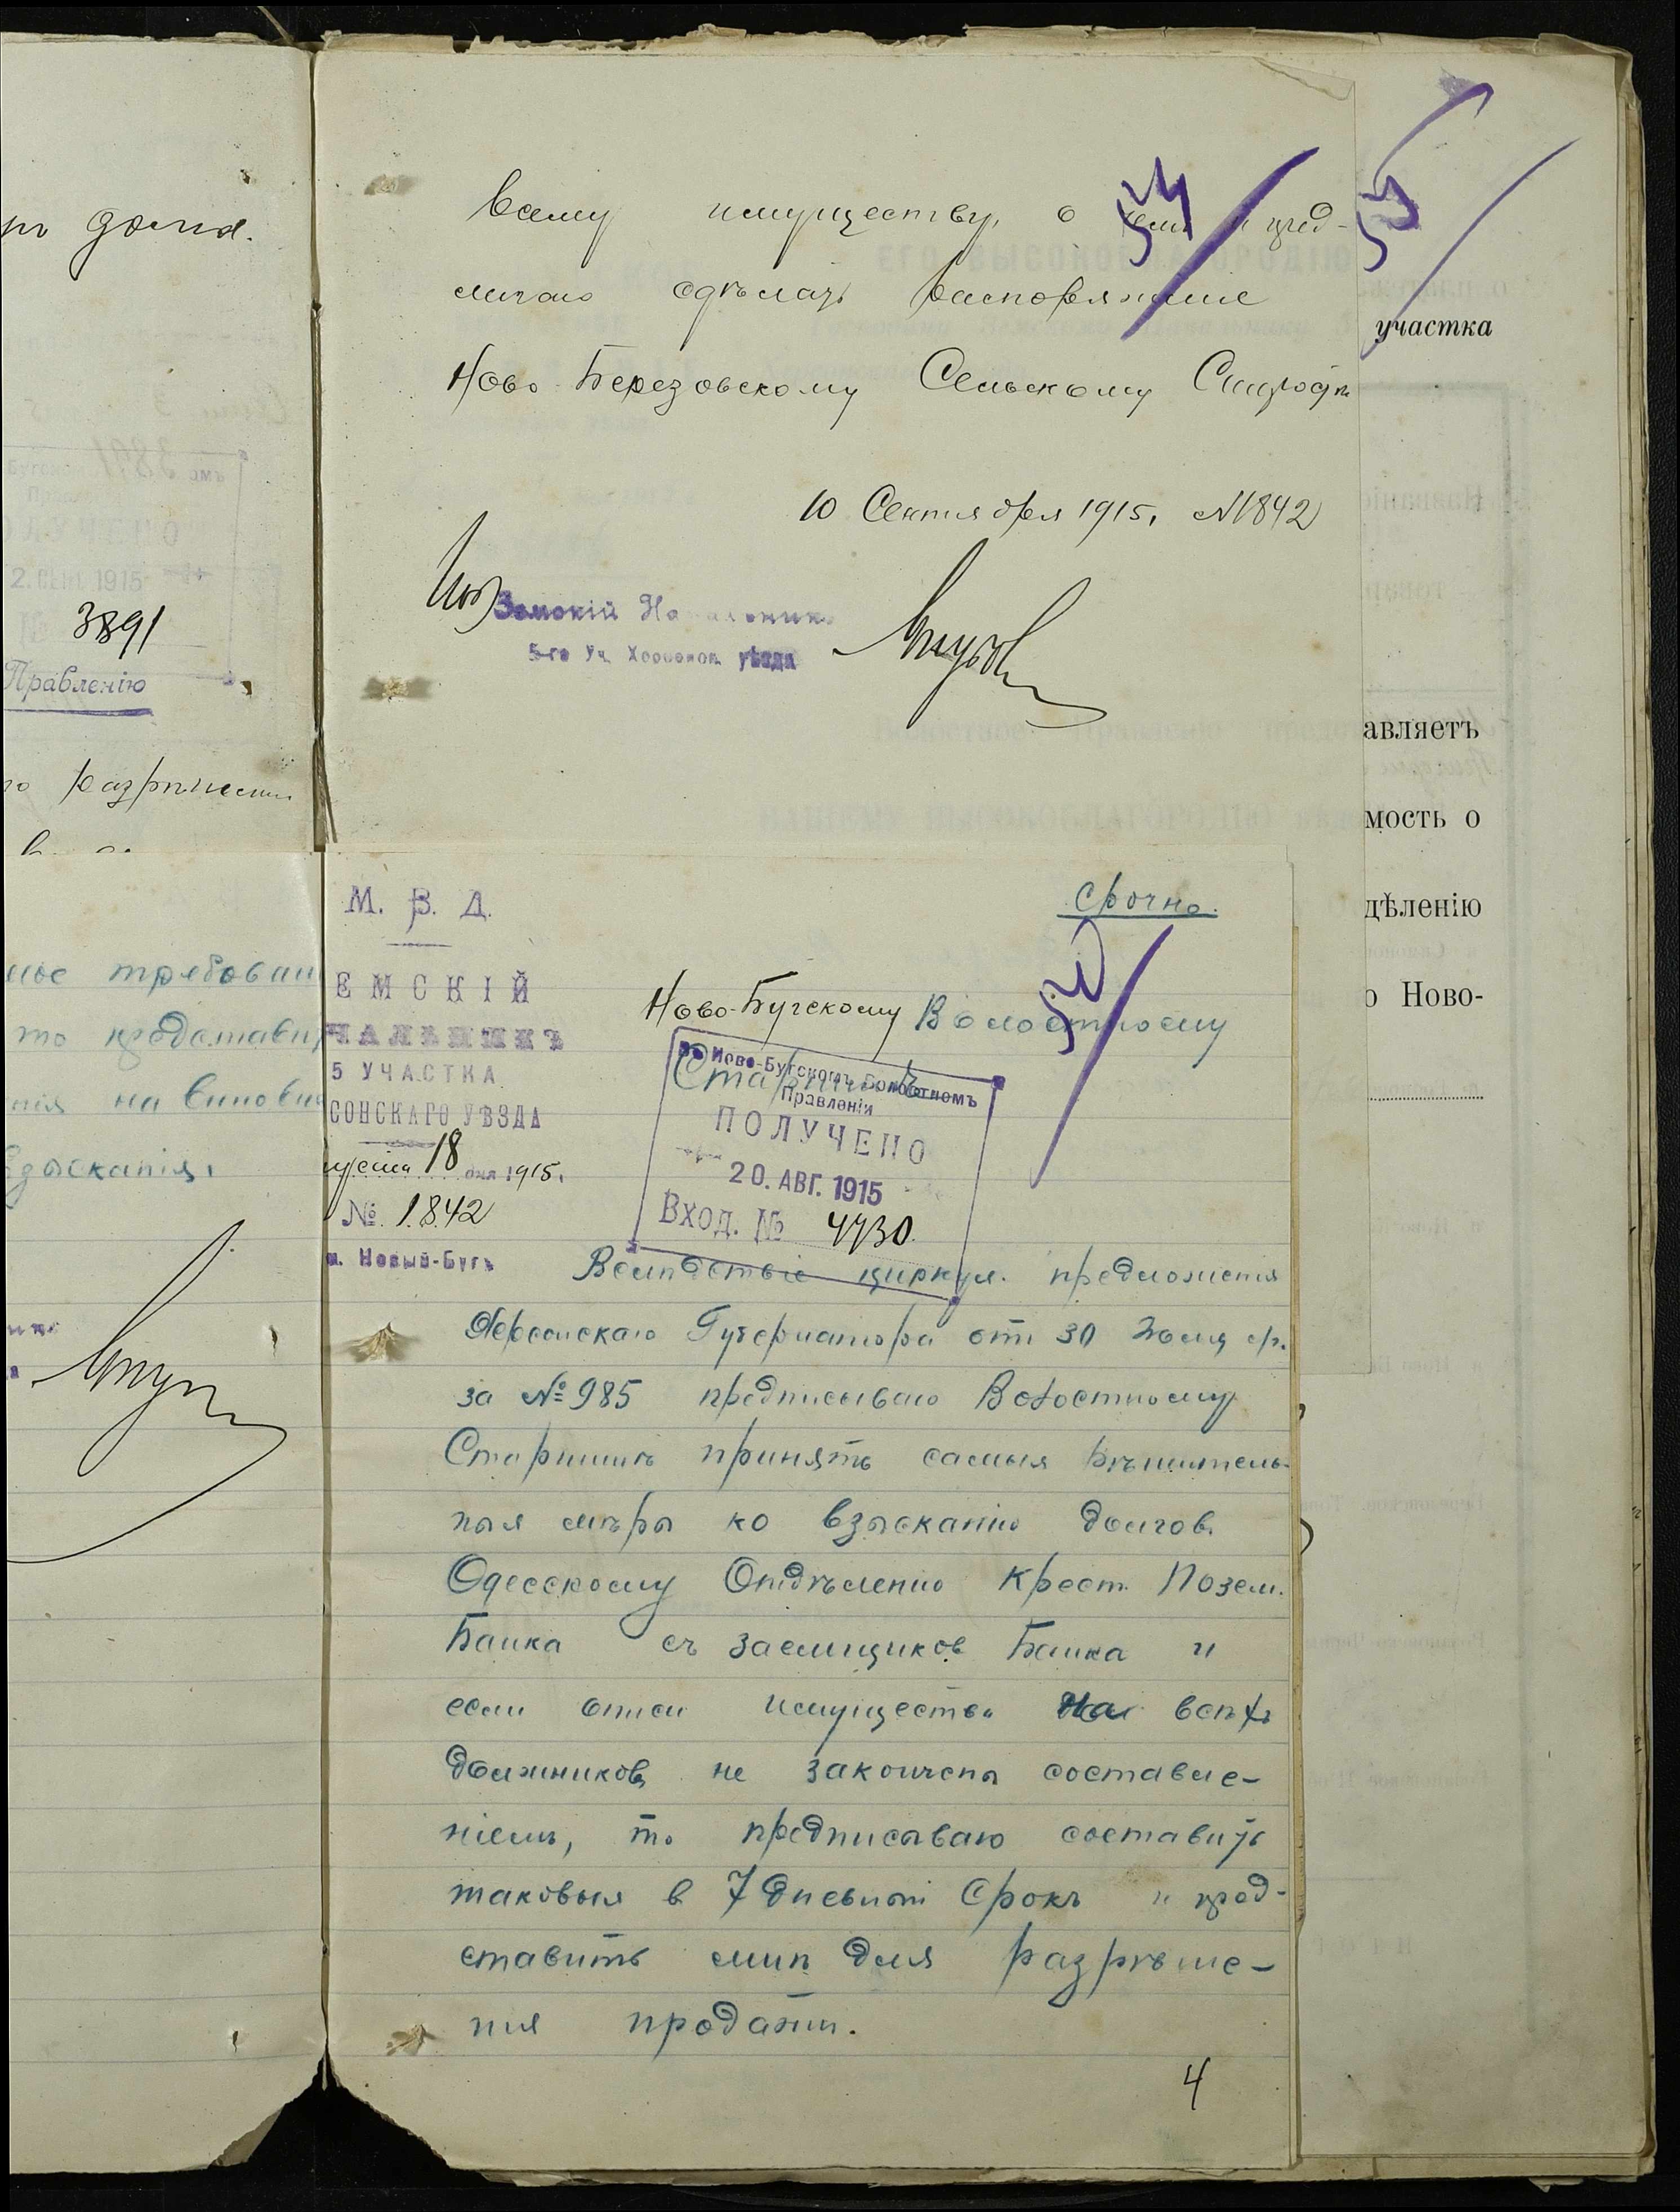 ръ долга.
3891
Правленію
разрѣшени
ное требовани
то представи
нія на виновн
взысканія.
всему имуществу, о чем и пред-
лагаю сдѣлать распоряженіе
Ново-Березовскому Сельскому Старостѣ
10 Сентября 1915, №1842
Земскій Начальникъ
5-го Уч. Херсонск. уѣзда
54
54
участка
авляетъ
мость о
дѣленію
о Ново-
М. В. Д.
ЕМСКІЙ
ЧАЛЬНИКЪ
5 УЧАСТКА
СОНСКАГО УѢЗДА
18 дня 1915.
№ 1842
м. Новый-Бугъ
Срочно.
54
Ново-Бугскому Волостному
Старшинѣ
въ Ново-Бугскомъ Волостномъ
Правленіи
ПОЛУЧЕНО
20. АВГ. 1915
Вход. № 4730.
Вслѣдствіе циркул. предложенія
Херсонскаго Губернатора от 30 Іюля ср.
за № 985 предписываю Волостному
Старшинѣ принять самыя рѣшитель-
ныя мѣры ко взысканію долгов
Одесскому Отдѣленію Крест. Позем.
Банка съ заемщиков Банка и
если описи имущества на всѣхъ
должников не закончены составле-
ніем, то предписываю составить
таковыя в 7 дневный срокъ и пред-
ставить мнѣ для разрѣше-
нія продажи.
4